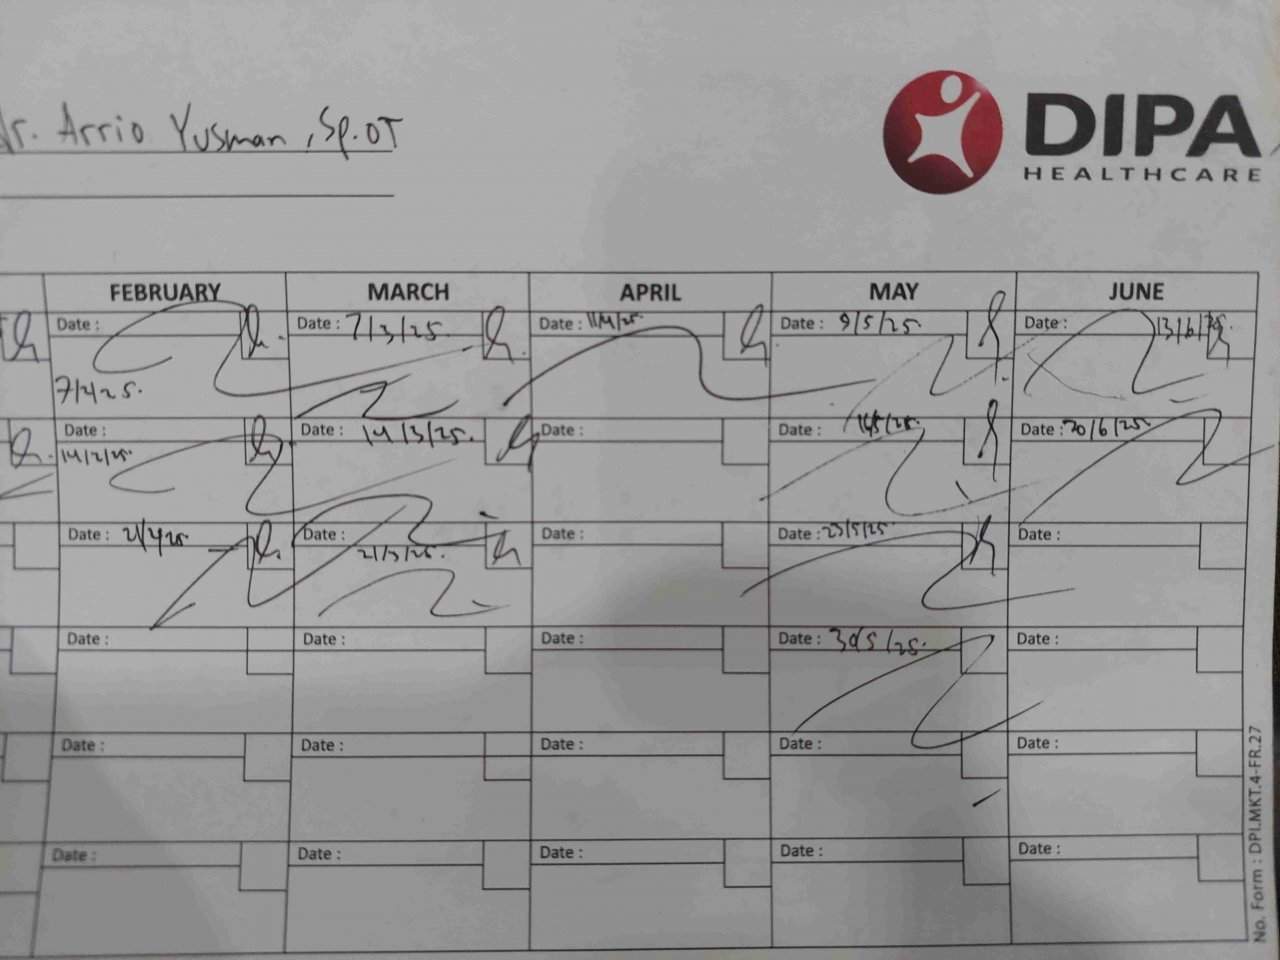 dr. Arrio Yusman, Sp.OT
DIPA
HEALTHCARE
FEBRUARY MARCH APRIL MAY JUNE
Date : Date : 7/3/25. Date : 11/4/25. Date : 9/5/25. Date : 13/6/25.
7/2/25.
Date : Date : 14/3/25. Date : Date : 16/5/25. Date : 20/6/25.
14/2/25.
Date : 21/2/25 Date : Date : Date : 23/5/25 Date :
21/3/25.
Date : Date : Date : Date : 30/5/25. Date :
Date : Date : Date : Date : Date :
Date : Date : Date : Date : Date :
No. Form : DPI.MKT.4-FR.27